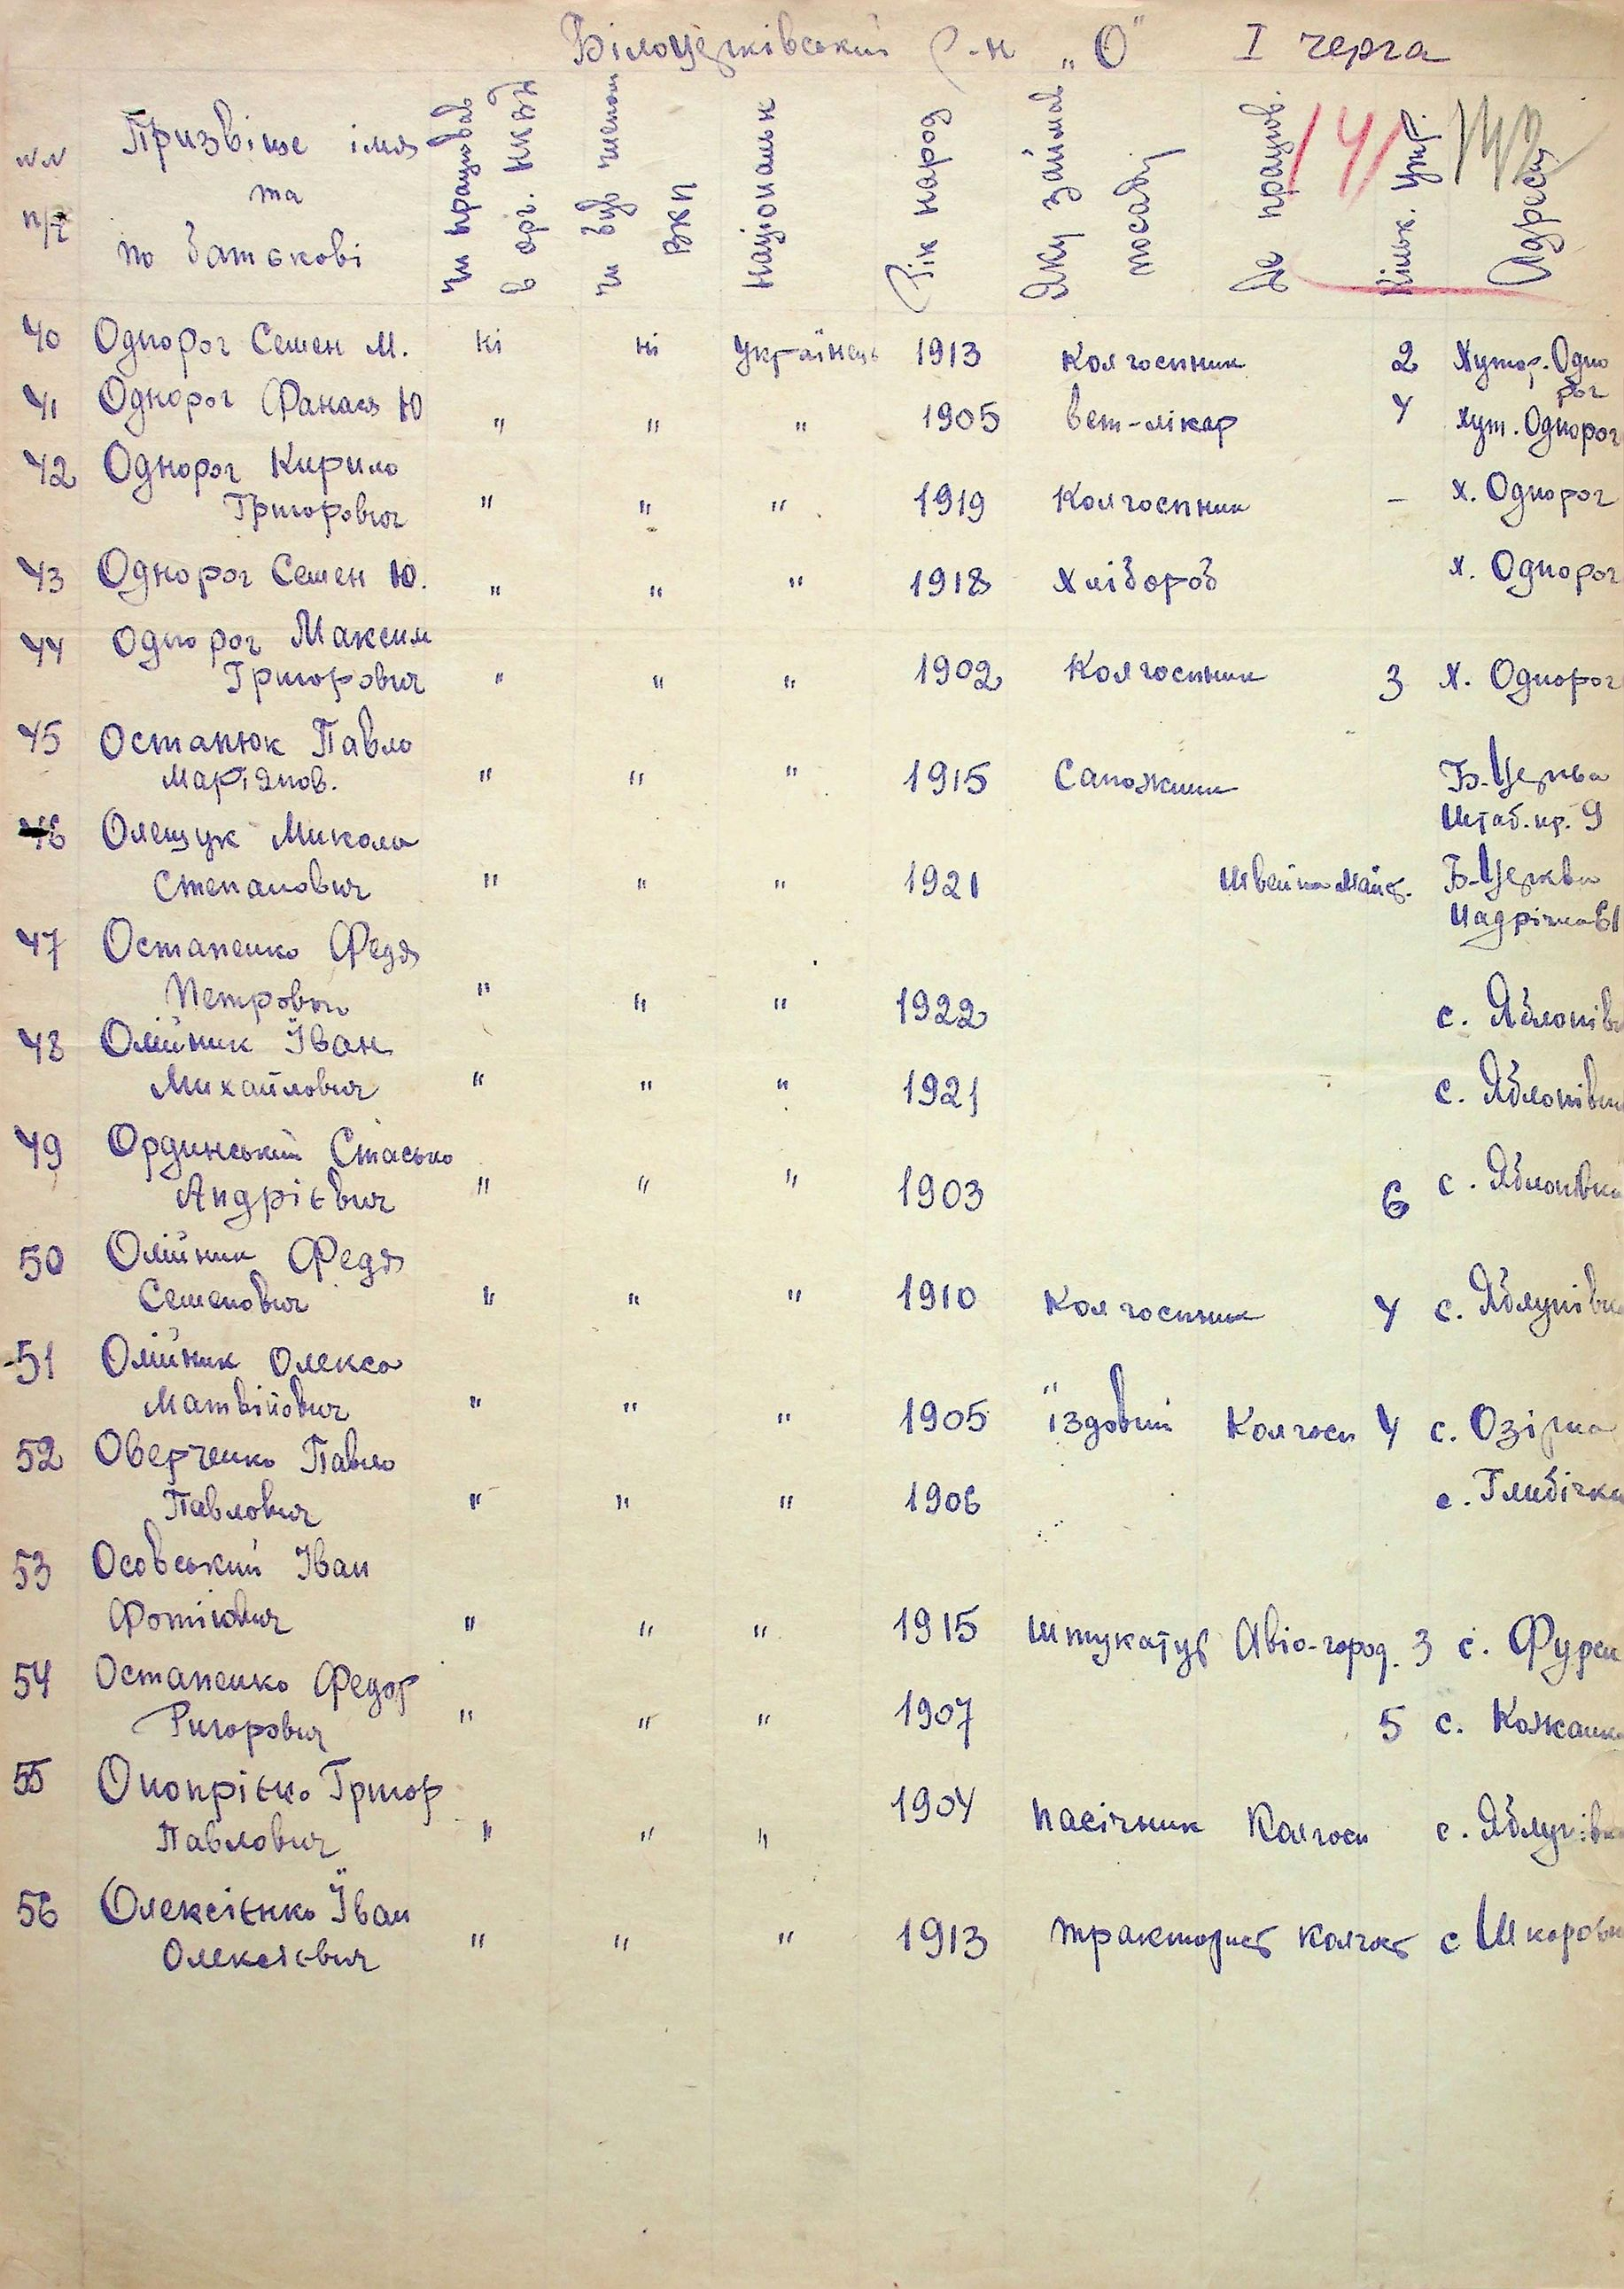 Білоцерківський р-н „О" І черга
141 142
№№ п/п
Призвіще імя та по батькові
чи працював в орг. НКВД
чи був членом ВКП
Національн
Рік народ
Яку займав посаду
Де працюв.
Кільк. утр.
Адреса
40 Однорог Семен М. ні ні Українець 1913 Колгоспник 2 Хутор. Одно
рог
41 Однорог Фанась Ю " " " 1905 вет-лікар 4 Хут. Однорог
42 Однорог Кирило
Григорович " " " 1919 Колгоспник – х. Однорог
43 Однорог Семен Ю. " " " 1918 Хлібороб х. Однорог
44 Однорог Максим
Григорович " " " 1902 Колгоспник 3 Х. Однорог
45 Остапюк Павло
Маріянов. " " " 1915 Сапожник Б-Церква
Штаб. пр. 9
46 Олещук Микола
Степанович " " " 1921 Швейна Майст. Б-Церква
Надрічна 61
47 Остапенко Федя
Петрович " " " 1922 с. Яблонівк
48 Олійник Їван
Михайлович " " " 1921 с. Яблонівка
49 Ординський Стасько
Андрієвич " " " 1903 6 с. Яблонівка
50 Олійник Федя
Семенович " " " 1910 Колгоспник 4 с. Яблунівка
51 Олійник Олекса
Матвійович " " " 1905 їздовий Колгосп 4 с. Озірна
52 Оверченко Павло
Павлович " " " 1906 с. Глибічка
53 Осовський Іван
Фотійович " " " 1915 штукатур Авіо-город. 3 с. Фурси
54 Остапенко Федор
Ригорович " " " 1907 5 с. Кожанка
55 Онопрієко Григор
Павлович " " " 1904 пасічник Колгосп с. Яблунівка
56 Олексієнко Їван
Олексієвич " " " 1913 тракторист колгосп с Шкаровк